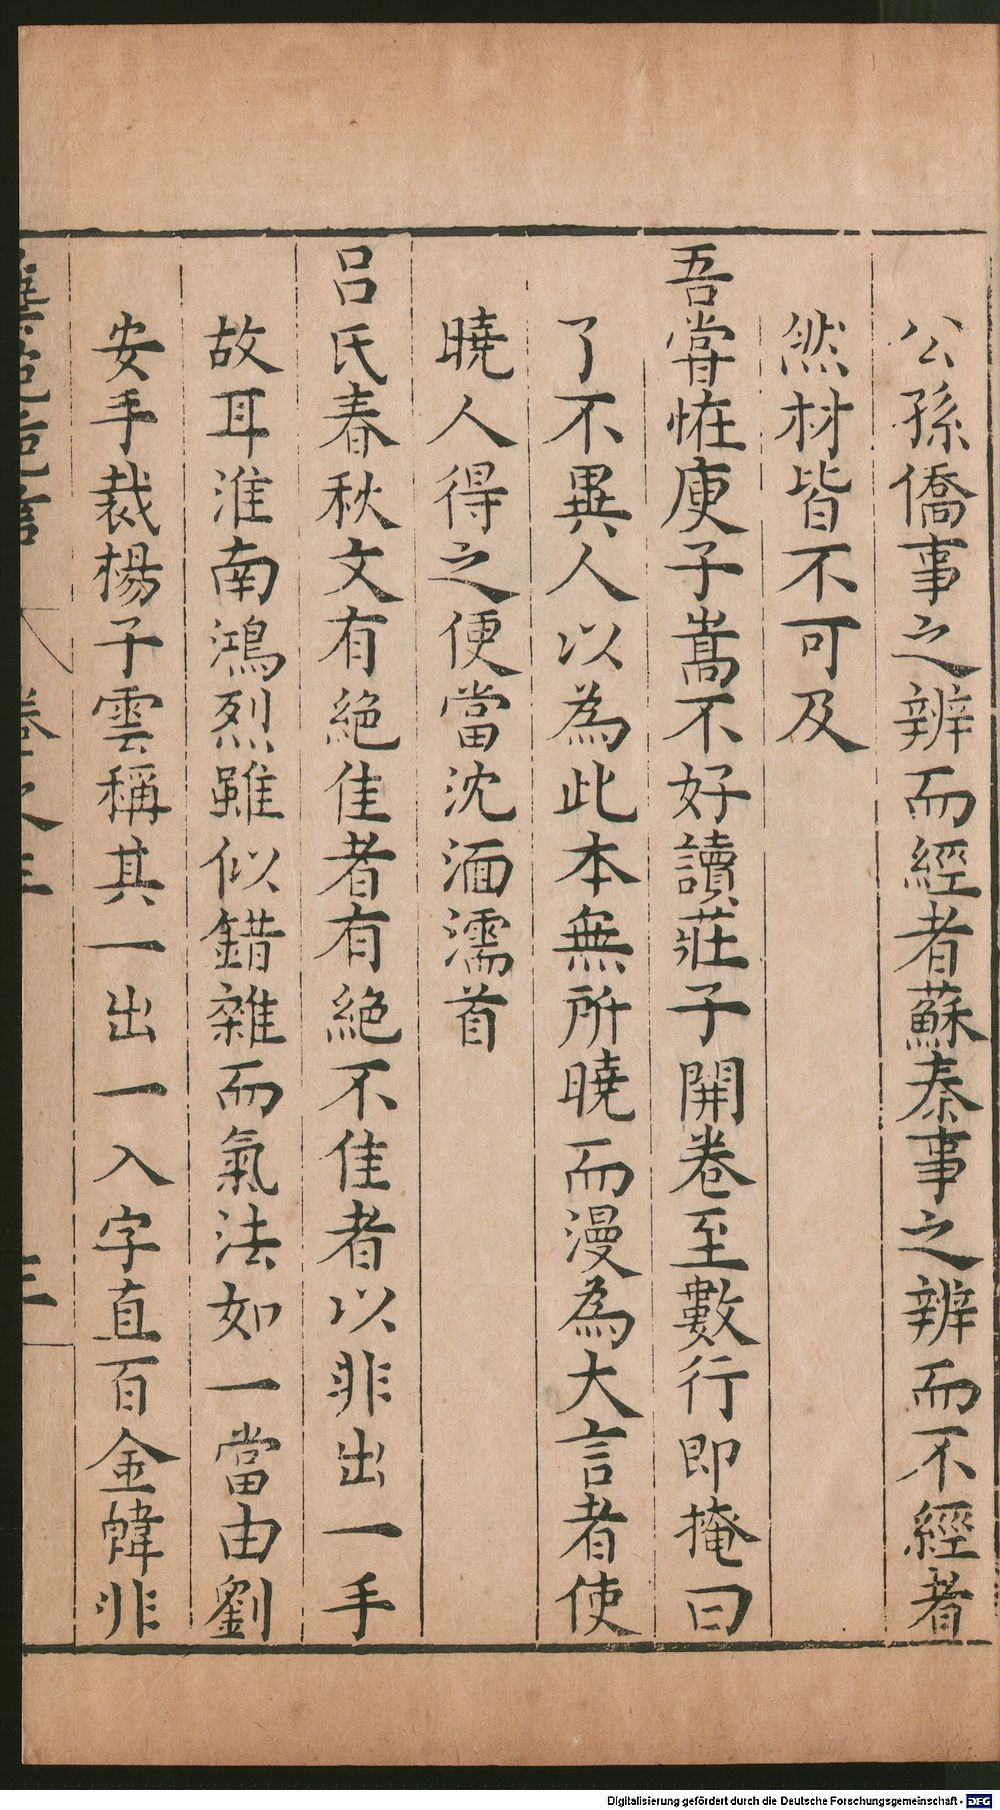 公孫僑事之辨而經者蘇秦事之辨而不經者
然材皆不可及
吾嘗恠庾子嵩不好讀莊子開卷至數行即掩曰
了不異人以為此本無所曉而漫為大言者使
曉人得之便當沈湎濡首
呂氏春秋文有絕佳者有絕不佳者以非出一手
故耳淮南鴻烈雖似錯雜而氣法如一當由劉
安手裁楊子雲稱其一出一入字直百金韓非
卷之三
三
Digitalisierung gefördert durch die Deutsche Forschungsgemeinschaft - DFG